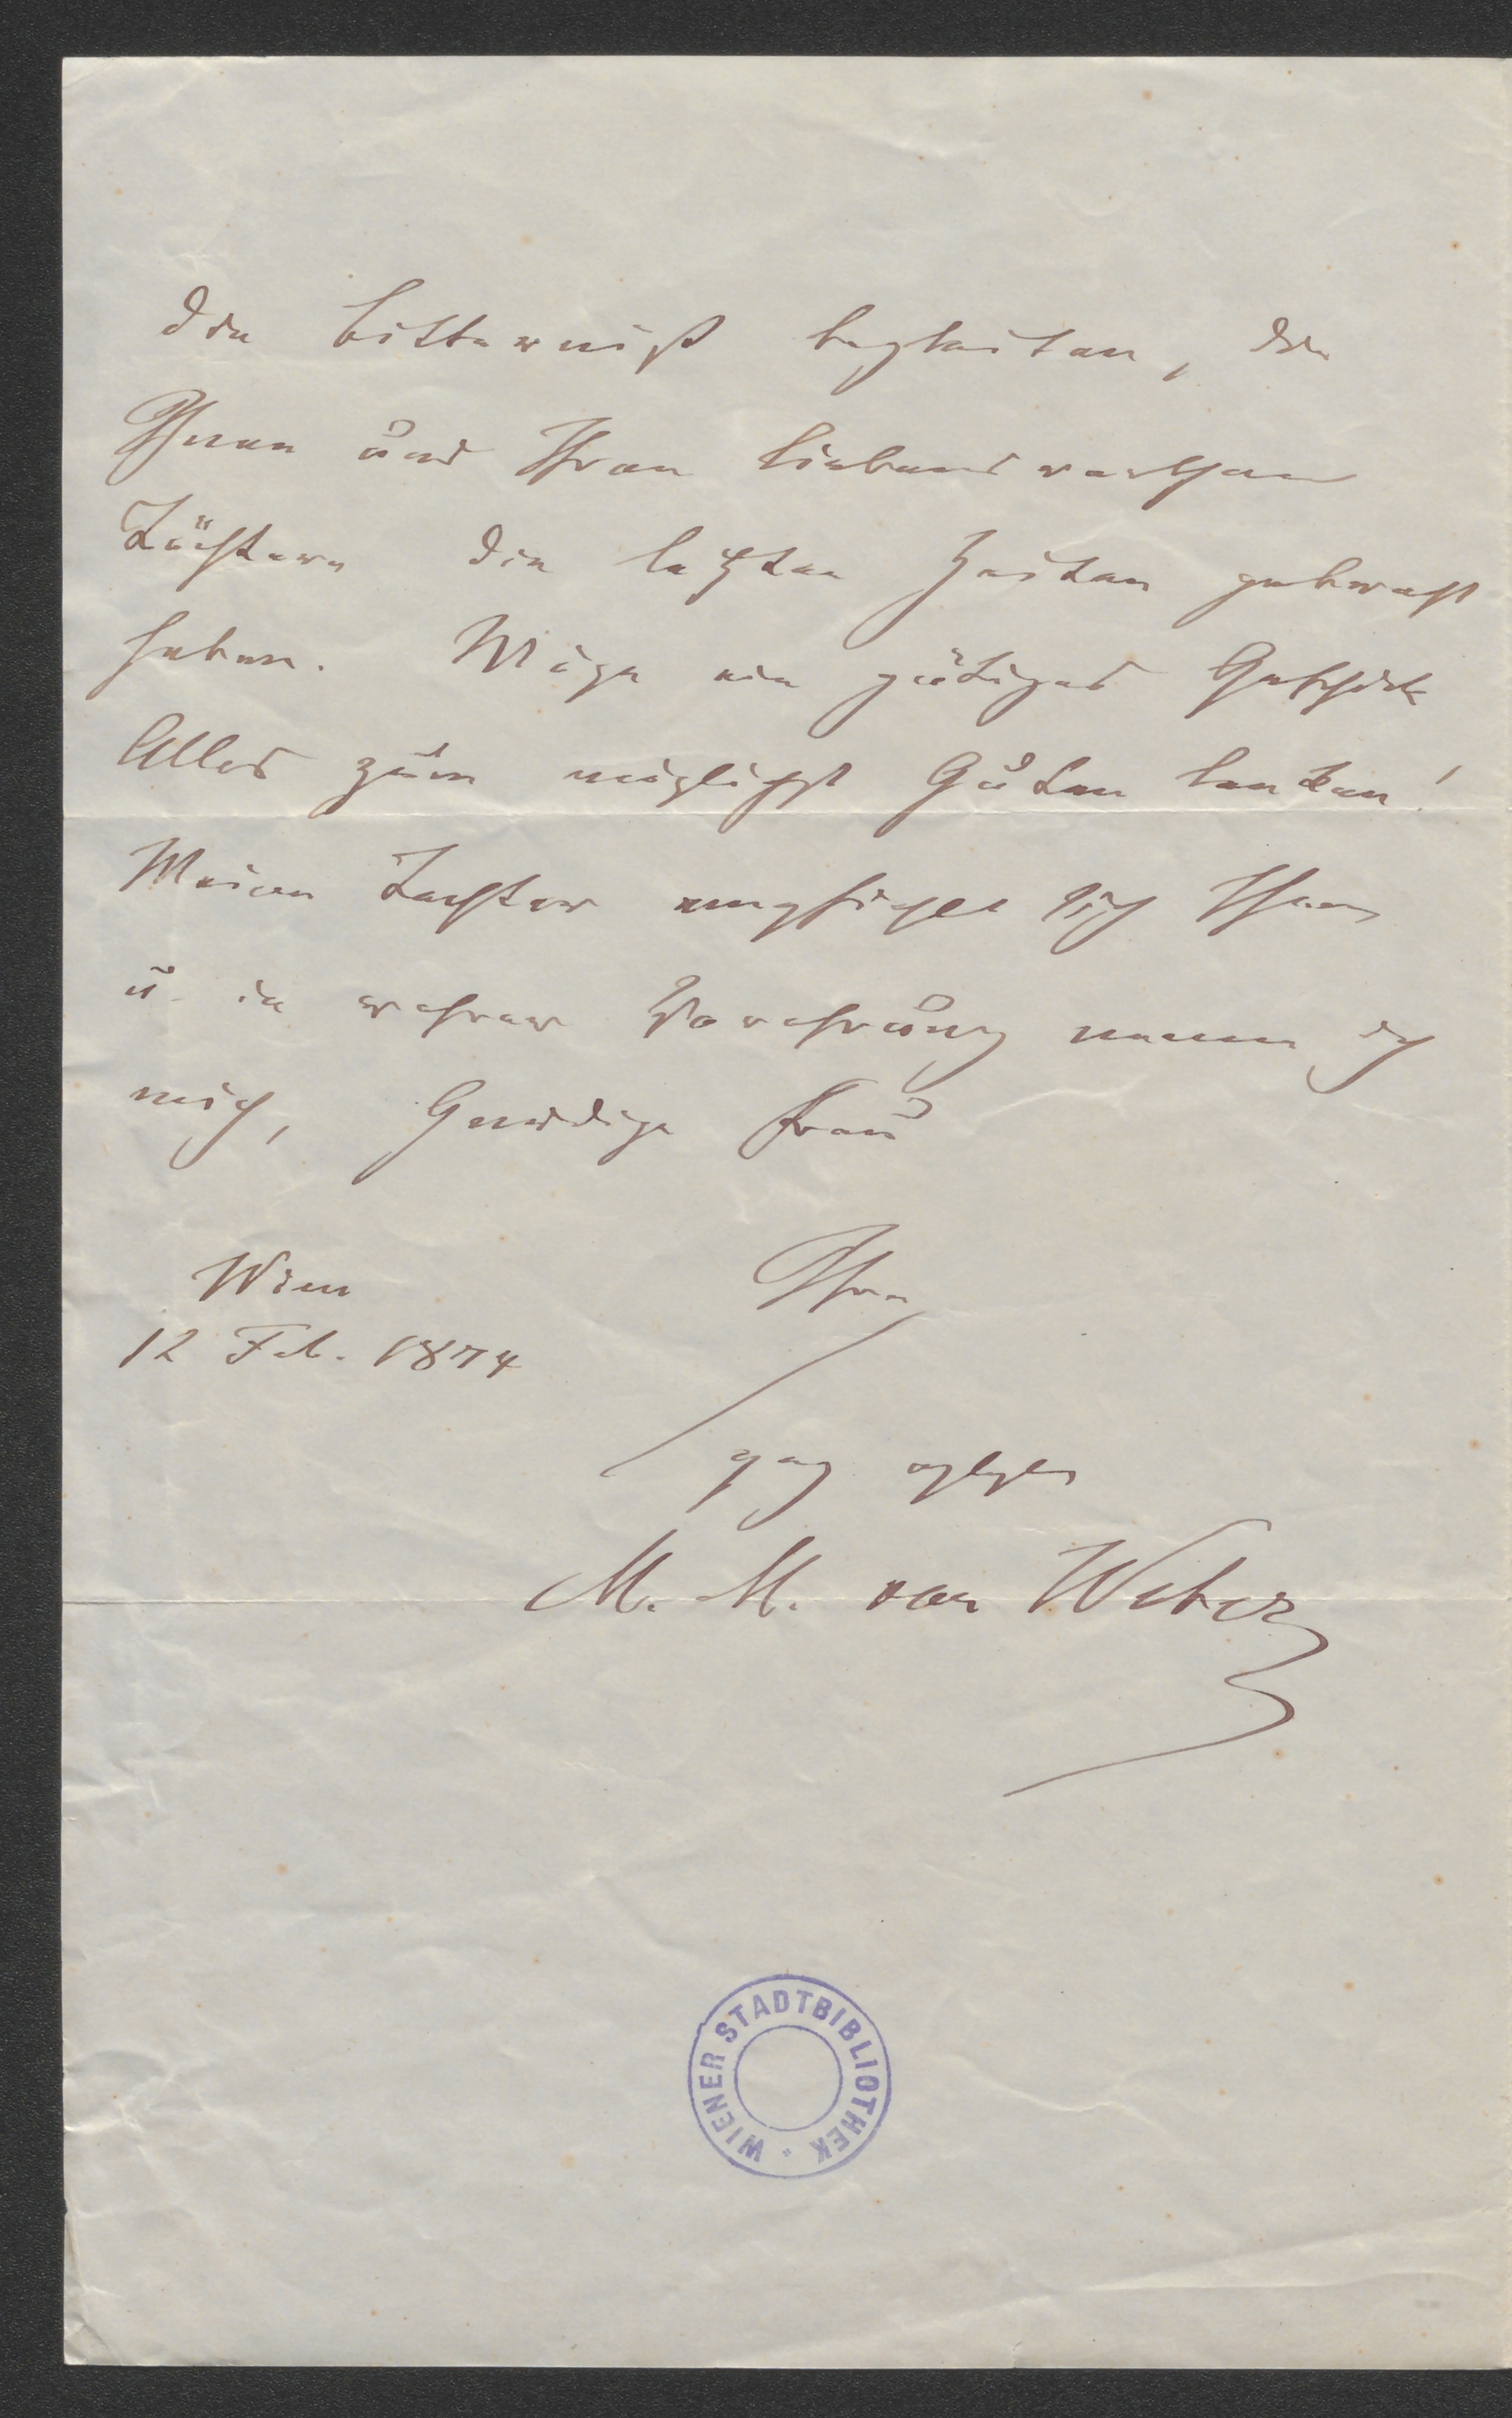 die Bitterniß begleiten, die
Ihnen und Ihren liebenswerthen
Töchtern die letzten Zeiten gebracht
haben. Möge ein gütiges Geschick
Alles zum möglichst Guten lenken!
Meine Tochter empfiehlt sich Ihnen
u. in wahrer Verehrung nenne ich
mich, Gnädige Frau
Wien
12 Feb. 1874
Ihren
ganz
M. M. von Weber
WIENER STADTBIBLIOTHEK